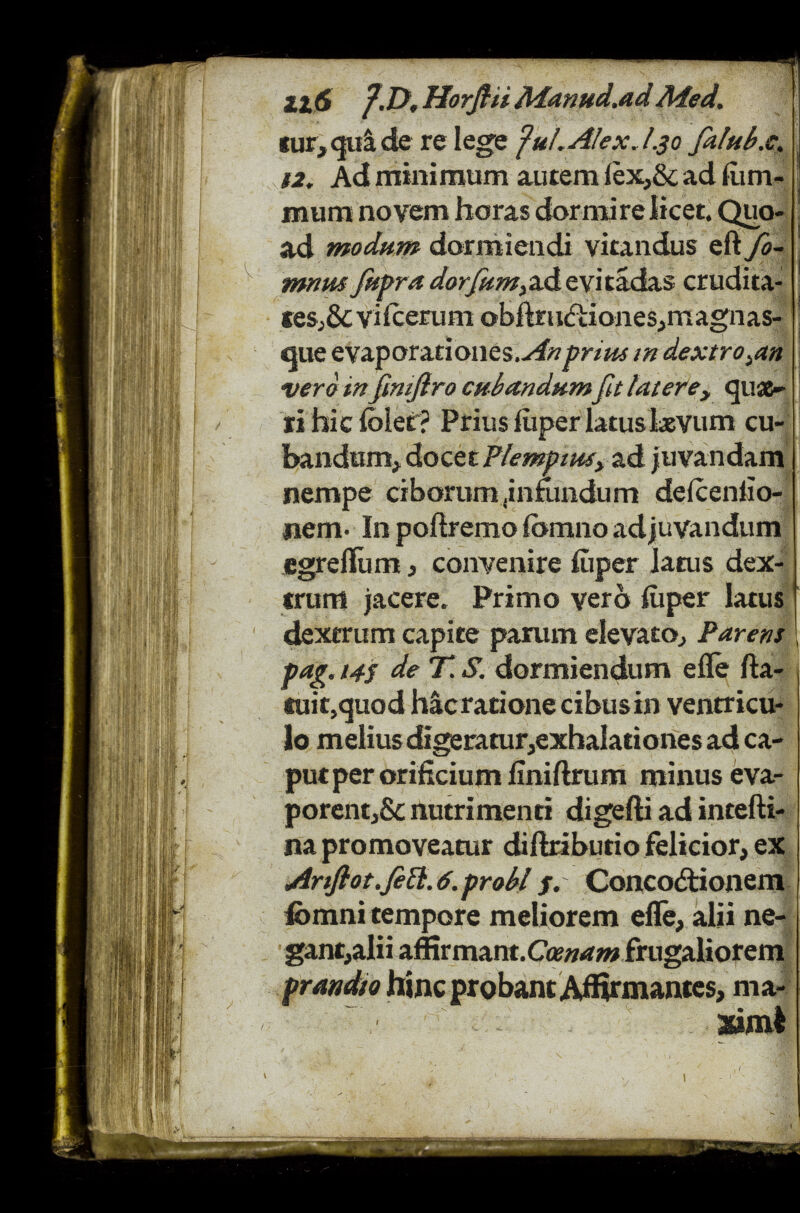 226 J.D. Horſtii Manud.ad Med.
tur, quâ de re lege Jul. Alex. l.30 ſalub.c.
12. Ad minimum autem ſex,& ad ſum-
mum novem horas dormire licet. Quo-
ad modum dormiendi vitandus eſt ſo-
mnus ſupra dorſum, ad evitādas crudita-
tes,& viſcerum obſtructiones, magnas-
que evaporationes. An prius in dextro, an
verò in ſiniſtro cubandum ſit latere, quæ-
ri hic ſolet? Prius ſuper latus lævum cu-
bandum, docet Plempius, ad juvandam
nempe ciborum infundum deſcenſio-
nem. In poſtremo ſomno adjuvandum
egreſſum, convenire ſuper latus dex-
trum jacere. Primo verò ſuper latus
dextrum capite parum elevato, Parens
pag. 145 de T. S. dormiendum eſſe ſta-
tuit, quod hâc ratione cibus in ventricu-
lo melius digeratur, exhalationes ad ca-
put per orificium ſiniſtrum minus eva-
porent,& nutrimenti digeſti ad inteſti-
na promoveatur diſtributio felicior, ex
Ariſtot. ſect. 6. probl 5. Concoctionem
ſomni tempore meliorem eſſe, alii ne-
gant, alii affirmant. Cœnam frugaliorem
prandio hinc probant Affirmantes, ma-
ximè